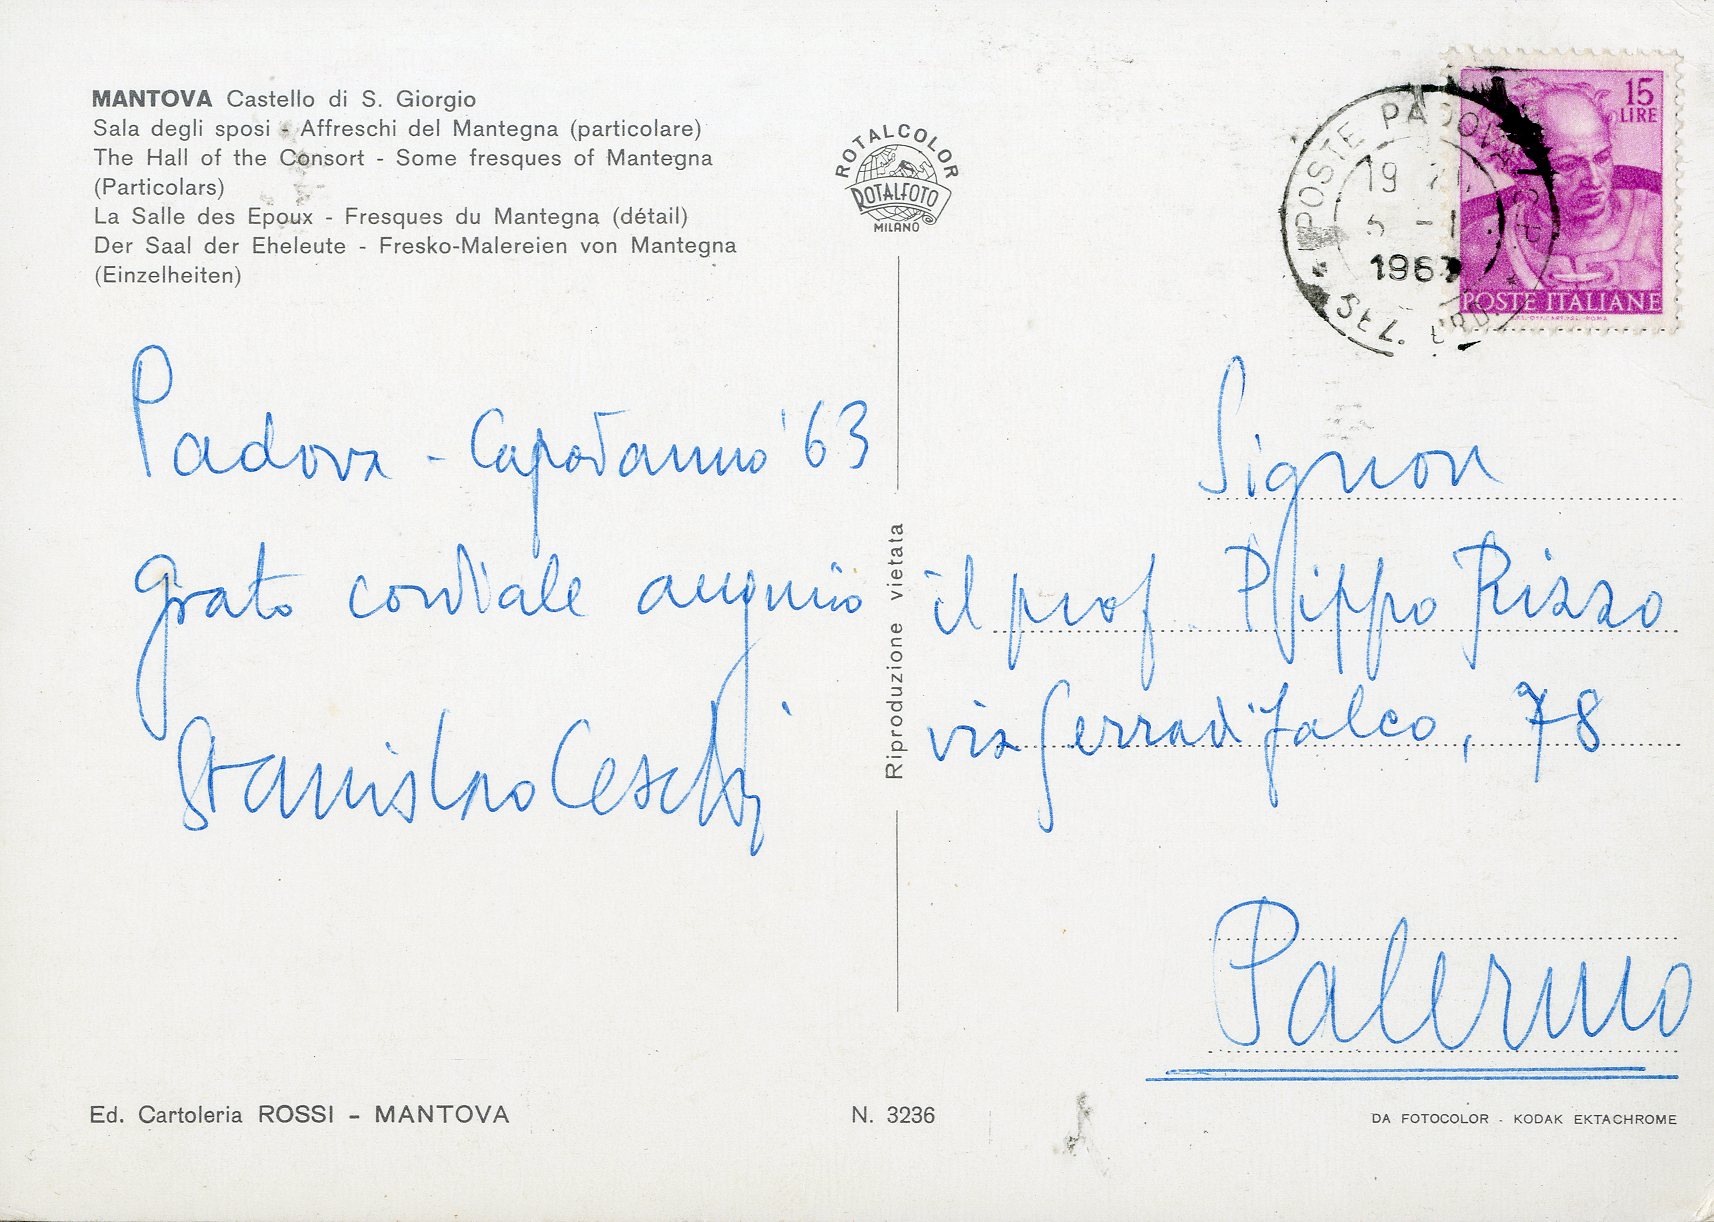 MANTOVA Castello di S. Giorgio
Sala degli sposi - Affreschi del Mantegna (particolare)
The Hall of the Consort - Some fresques of Mantegna
(Particolars)
La Salle des Epoux - Fresques du Mantegna (détail)
Der Saal der Eheleute - Fresko-Malereien von Mantegna
(Einzelheiten)
ROTALCOLOR
ROTALFOTO
MILANO
POSTE PADOVA
19
5 - 1
1963
15
LIRE
POSTE ITALIANE
Padova - Capodanno '63
grato cordiale augurio
Stanislao Ceschi
Riproduzione vietata
Signor
il prof. Pippo Rizzo
via Serradifalco, 78
Palermo
Ed. Cartoleria ROSSI - MANTOVA
N. 3236
DA FOTOCOLOR - KODAK EKTACHROME